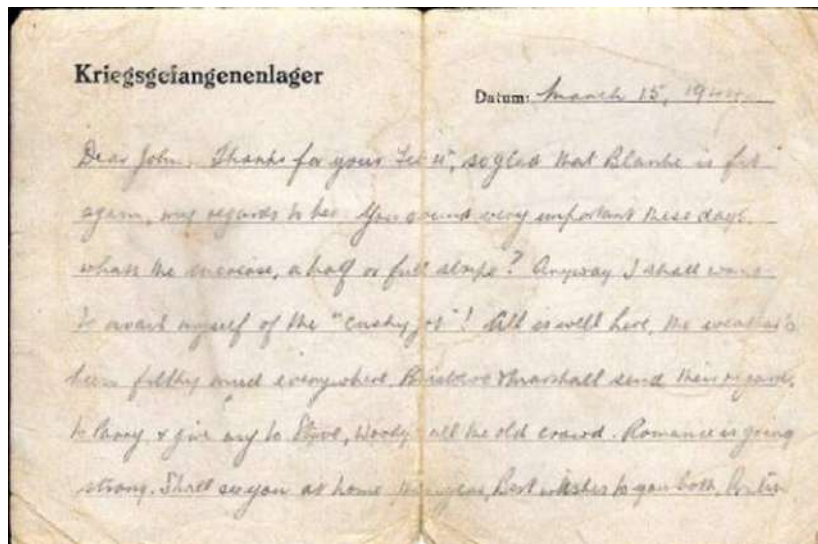 Kriegsgefangenenlager
Datum: March 15, 1944
Dear John. Thanks for your so glad that Blanche is fit
again, my regards to her. You sound very important these days.
whats the increase, a half or full stripe? Anyway I shall want
to avail myself of the "cushy job"! All is well here, the weather's
been filthy mud everywhere. & Marshall send their regards
to Parry & give my to Steve, Woody all the old crowd. Romance is going
strong. Shall see you at home this year, Best wishes to you both,